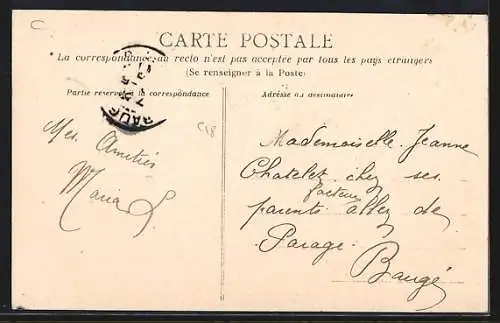 C
CARTE POSTALE
La correspondance au recto n'est pas acceptée par tous les pays étrangers
(Se renseigner à la Poste)
Partie réservée à la correspondance
Adresse du destinataire
BAUG
C18
Mes Amitiés
Maria L
Mademoiselle Jeanne
Chatelet chez ses
facteur
parents allez de
Parage
Baugé